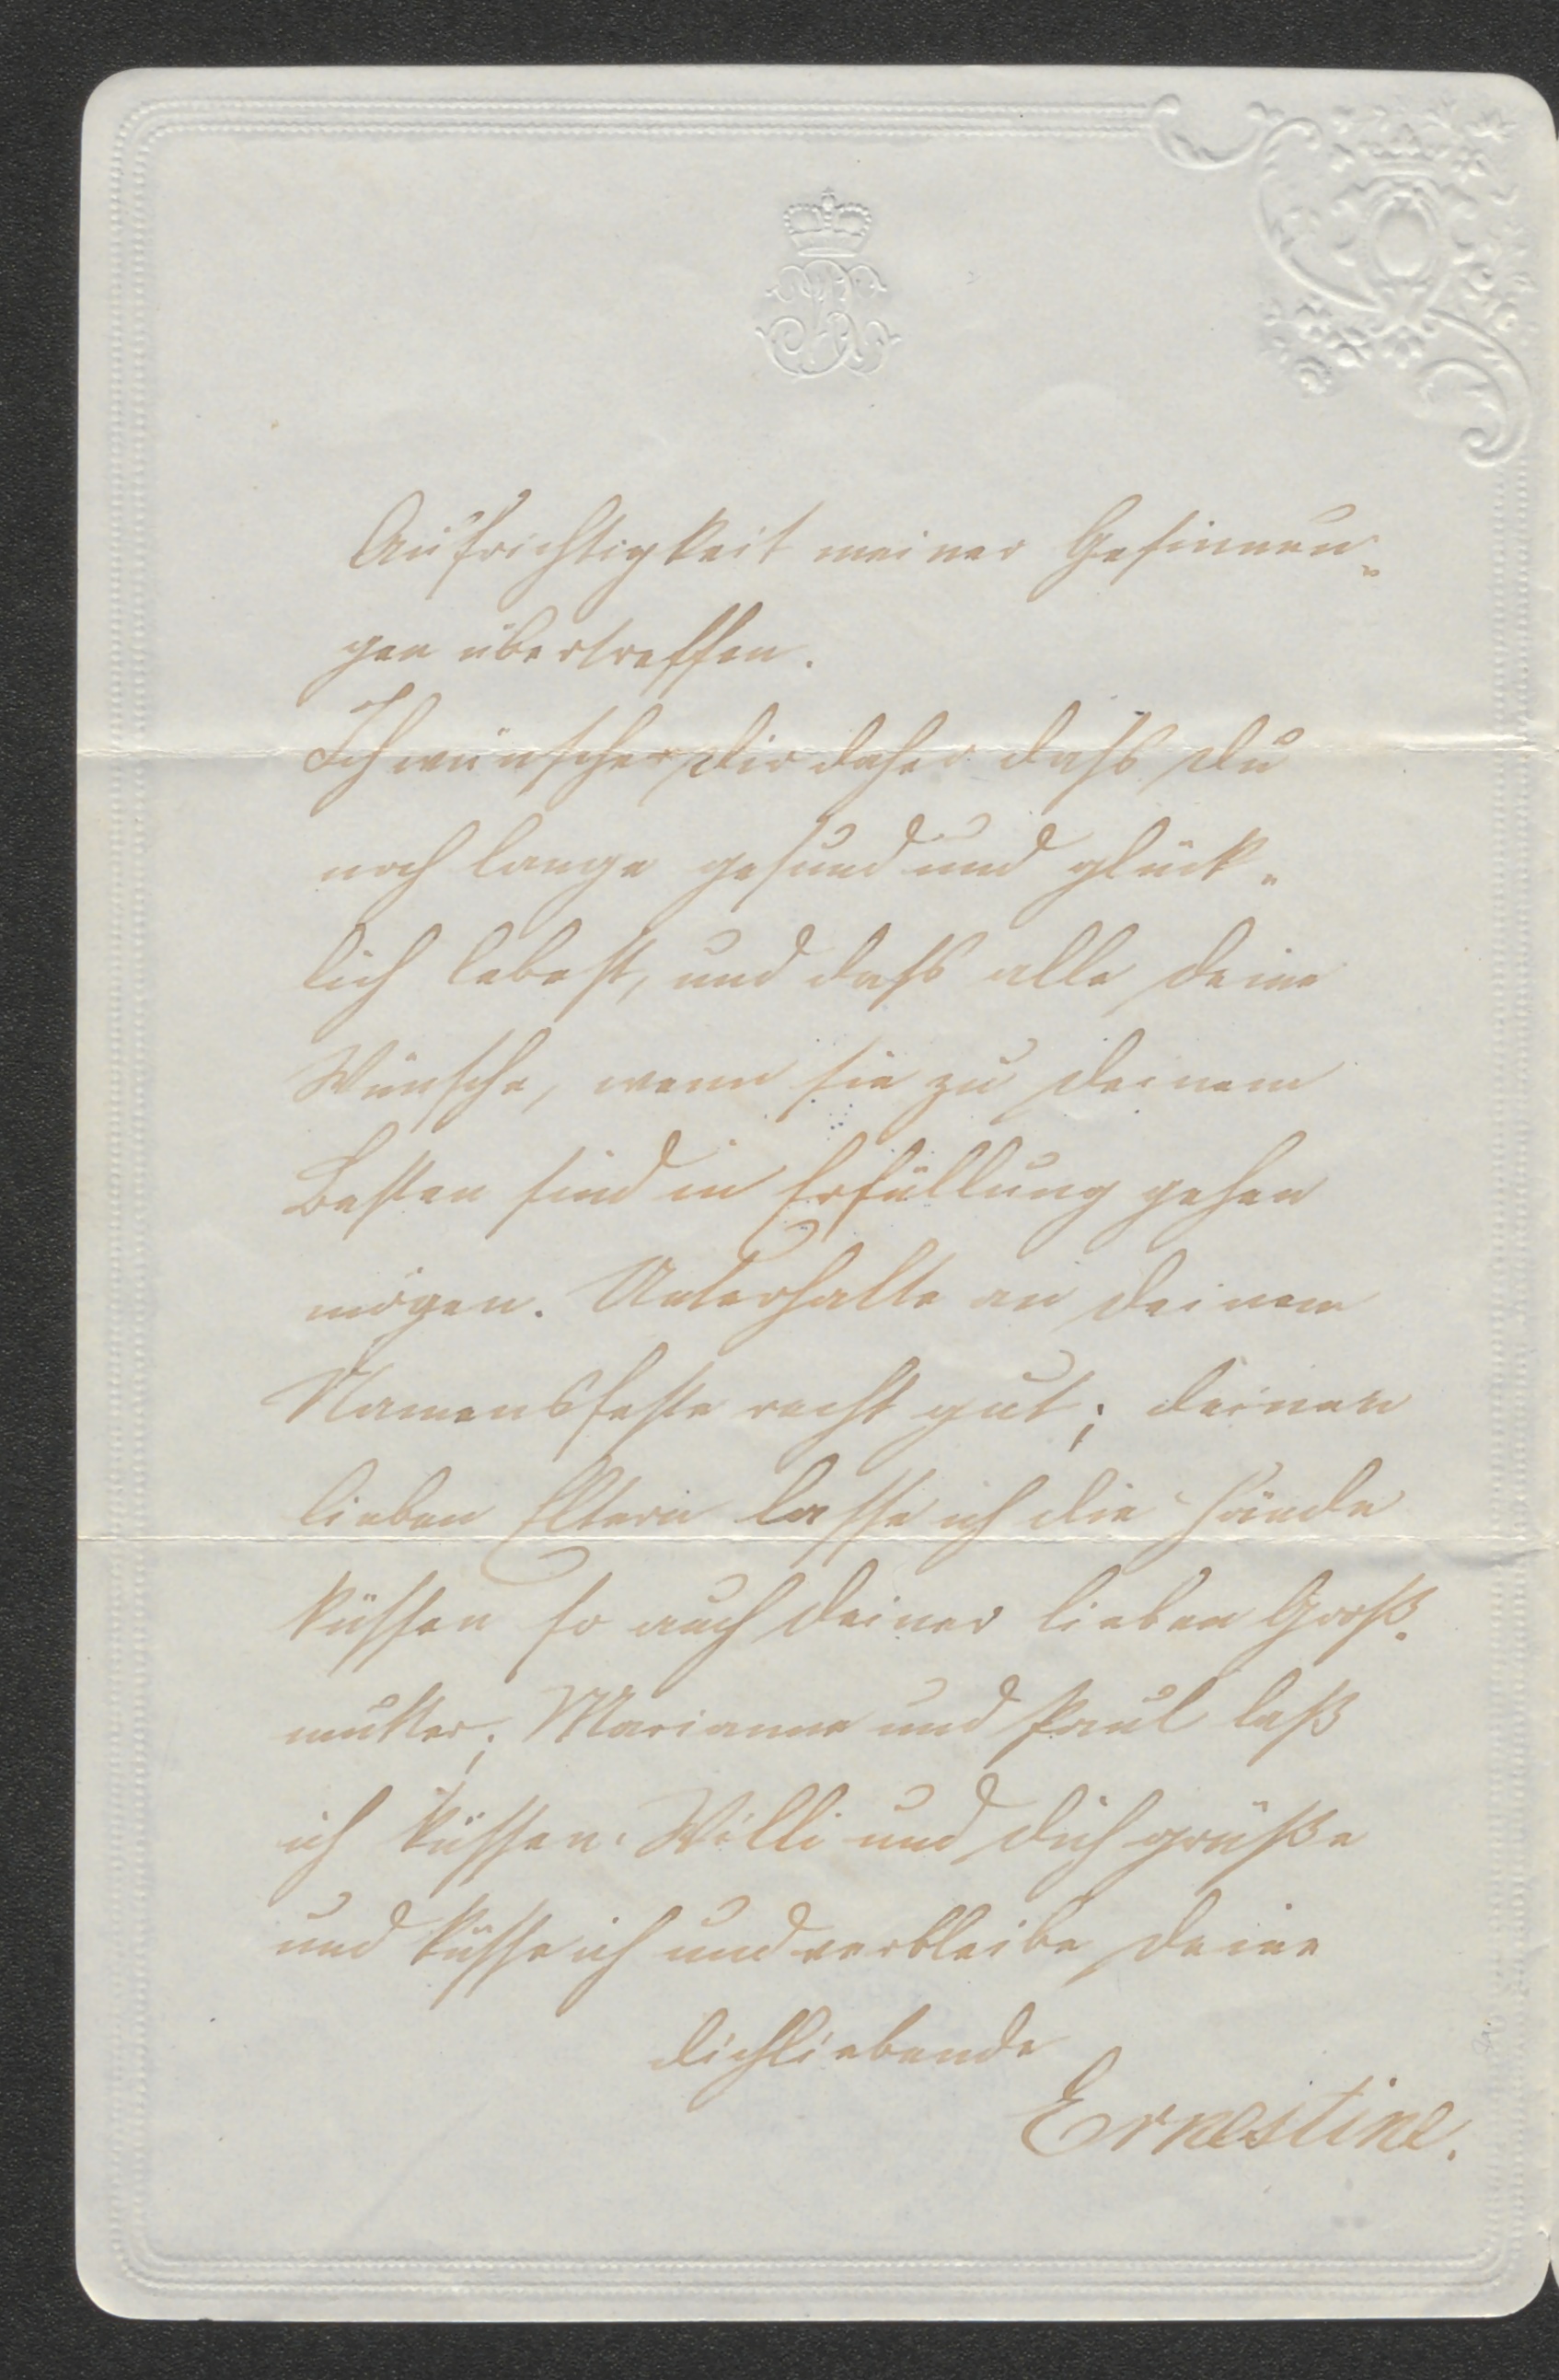 Aufrichtigkeit meiner Gesinnun-
gen übertreffen.
Ich wünsche dir daher daß du
noch lange gesund und glück-
lich lebest, und daß alle deine
Wünsche, wenn sie zu deinem
Besten sind in Erfüllung gehen
mögen. Unterhalte an deinem
Namensfeste recht gut; deinen
lieben Eltern lasse ich die Hände
küssen so auch deiner lieben Groß-
mutter; Marianne und Paul laß
ich küssen. Willi und dich grüße
und küsse ich und verbleibe deine
dichliebende
Ernestine.